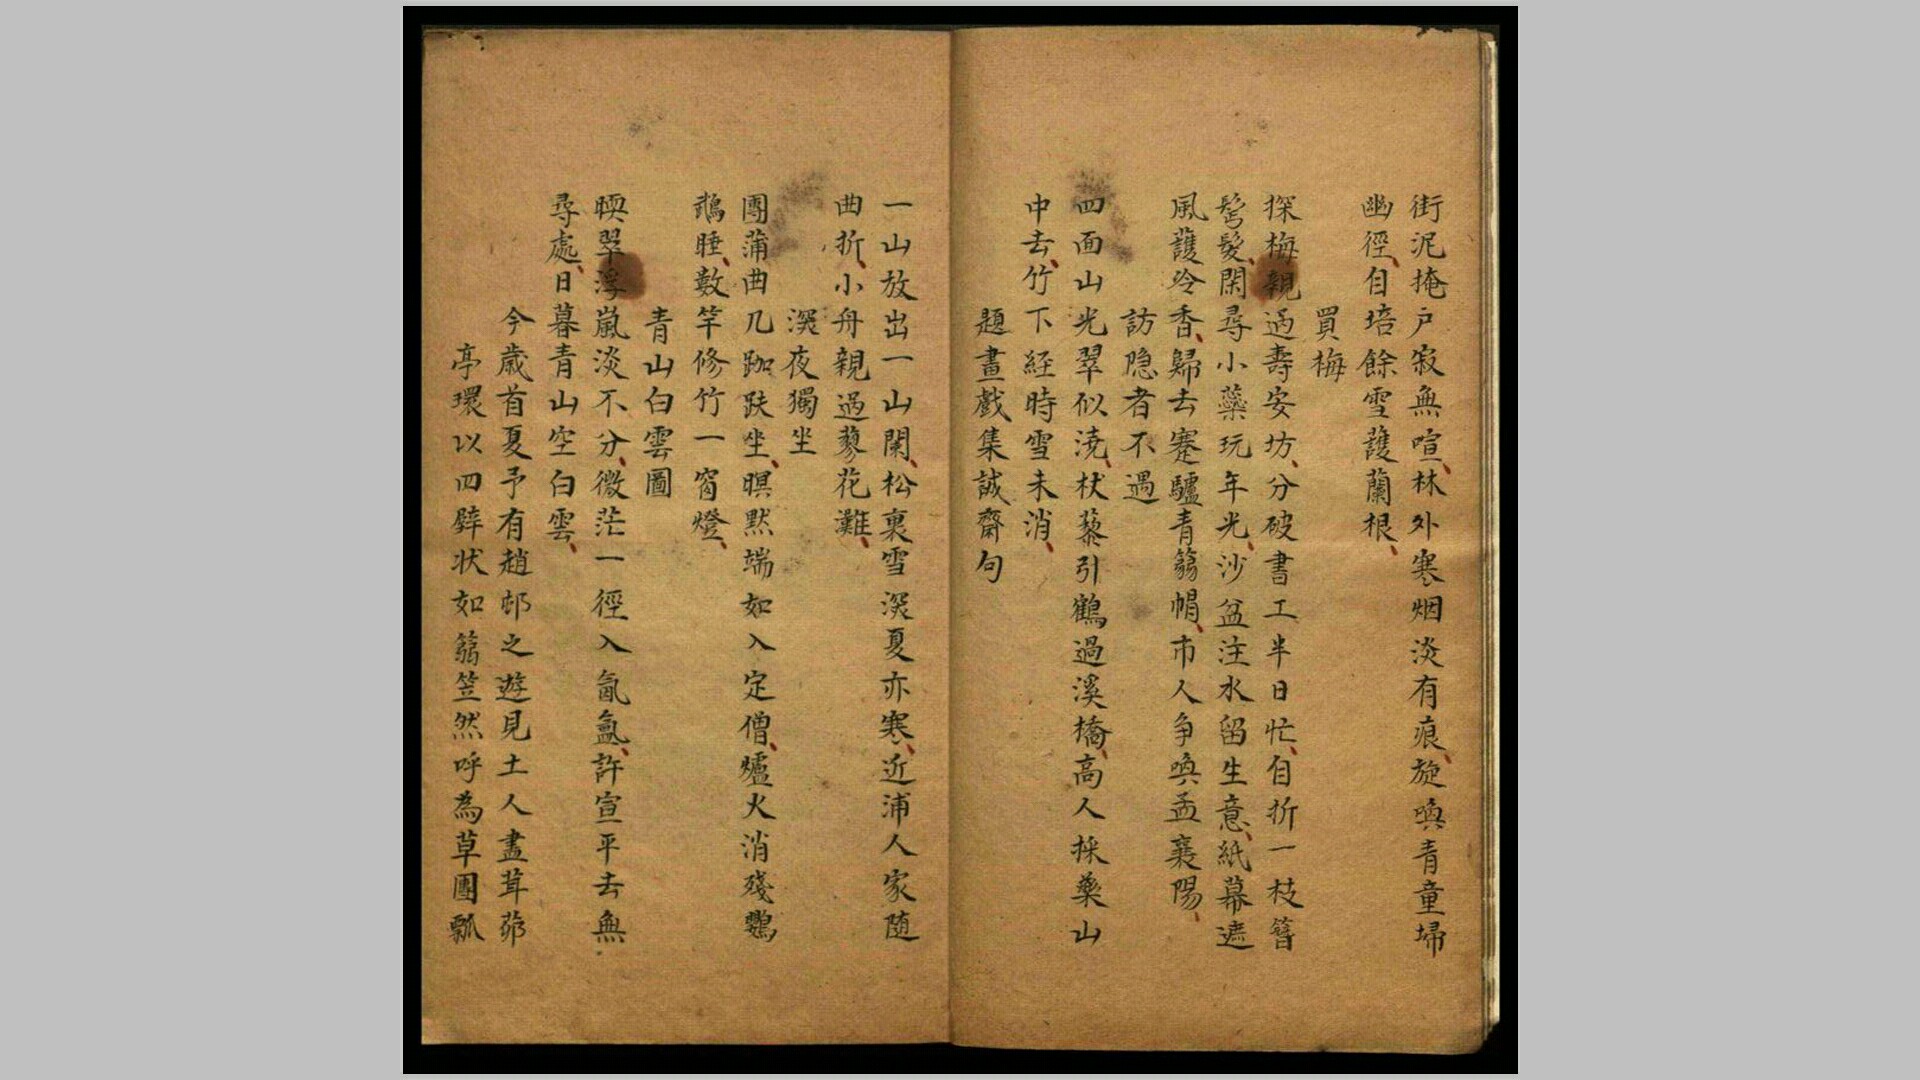 街泥掩户寂無喧林外寒烟淡有痕旋喚青童埽
幽徑自培餘雪護蘭根
買梅
探梅親過壽安坊分破書工半日忙自折一枝簪
髩髮閑尋小藥玩年光沙盆注水留生意紙幕遮
風護冷香歸去蹇驢青篛帽市人争喚孟襄陽
訪隐者不遇
四面山光翠似澆杖藜引鶴過溪橋高人採藥山
中去竹下経時雪未消
題畫戲集誠齋句
一山放出一山閑松裏雪深夏亦寒近浦人家随
曲折小舟親過蓼花灘
深夜獨坐
團蒲曲几跏趺坐暝默端如入定僧爐火消殘鸚
鵡睡數竿修竹一窗燈
青山白雲圖
暎翠浮嵐淡不分微茫一徑入氤氲許宣平去無
尋處日暮青山空白雲
今歲首夏予有趙邨之遊見土人盡茸茆
亭環以四壁状如篛笠然呼為草團瓢